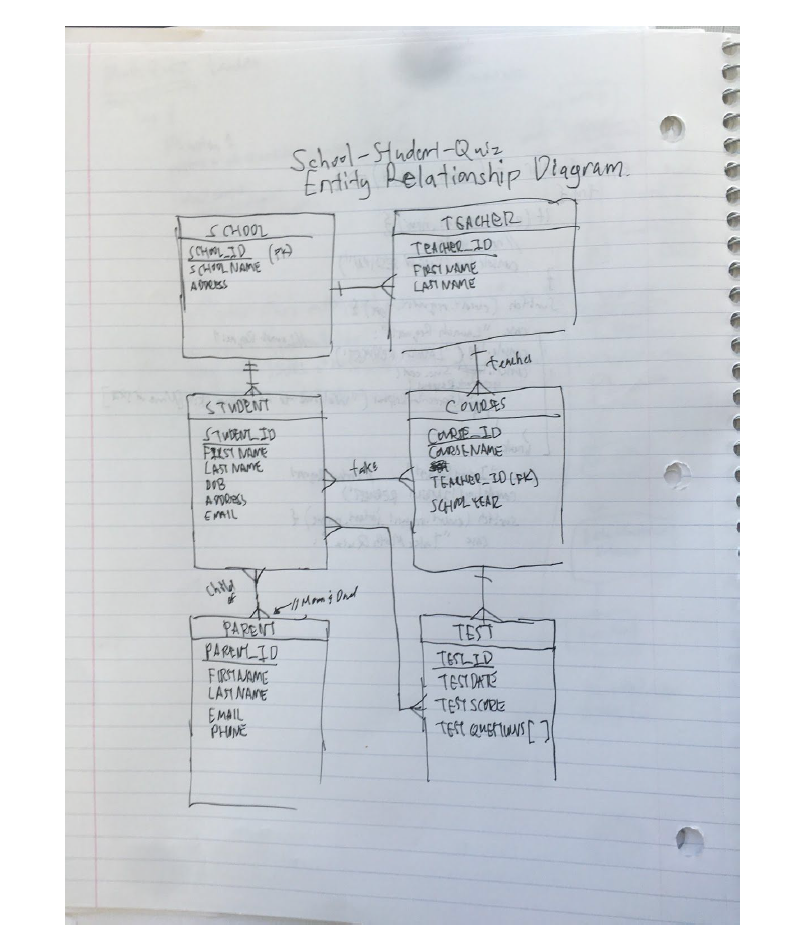 School-Student-Quiz
Entity Relationship Diagram.
SCHOOL
SCHOOL_ID (PK)
SCHOOL NAME
ADDRESS
TEACHER
TEACHER_ID
FIRST NAME
LAST NAME
teaches
STUDENT
STUDENT_ID
FIRST NAME
LAST NAME
DOB
ADDRESS
EMAIL
take
COURSES
COURSE_ID
COURSE NAME
TEACHER_ID (FK)
SCHOOL YEAR
Child
of
// Mom & Dad
PARENT
PARENT_ID
FIRST NAME
LAST NAME
EMAIL
PHONE
TEST
TEST_ID
TEST DATE
TEST SCORE
TEST QUESTIONS [ ]